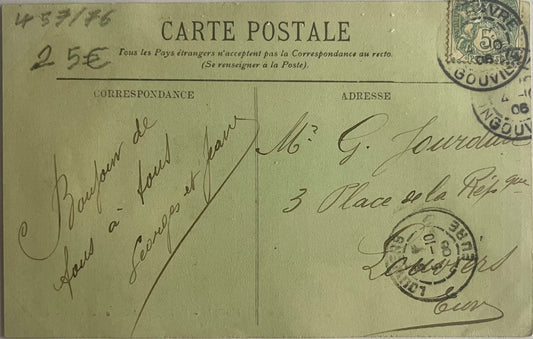 457/76
25€
CARTE POSTALE
Tous les Pays étrangers n'acceptent pas la Correspondance au recto.
(Se renseigner à la Poste).
CORRESPONDANCE
ADRESSE
Bonjour de
tous à tous
Georges et Jeanne
Mr G. Jourdain
3 Place de la Répque
Louviers
Eure
HAVRE
06
5
LOUVIERS
EURE